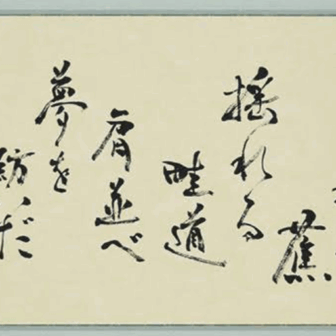 蕉
揺れる
畦道
肩並べ
夢を
紡いだ